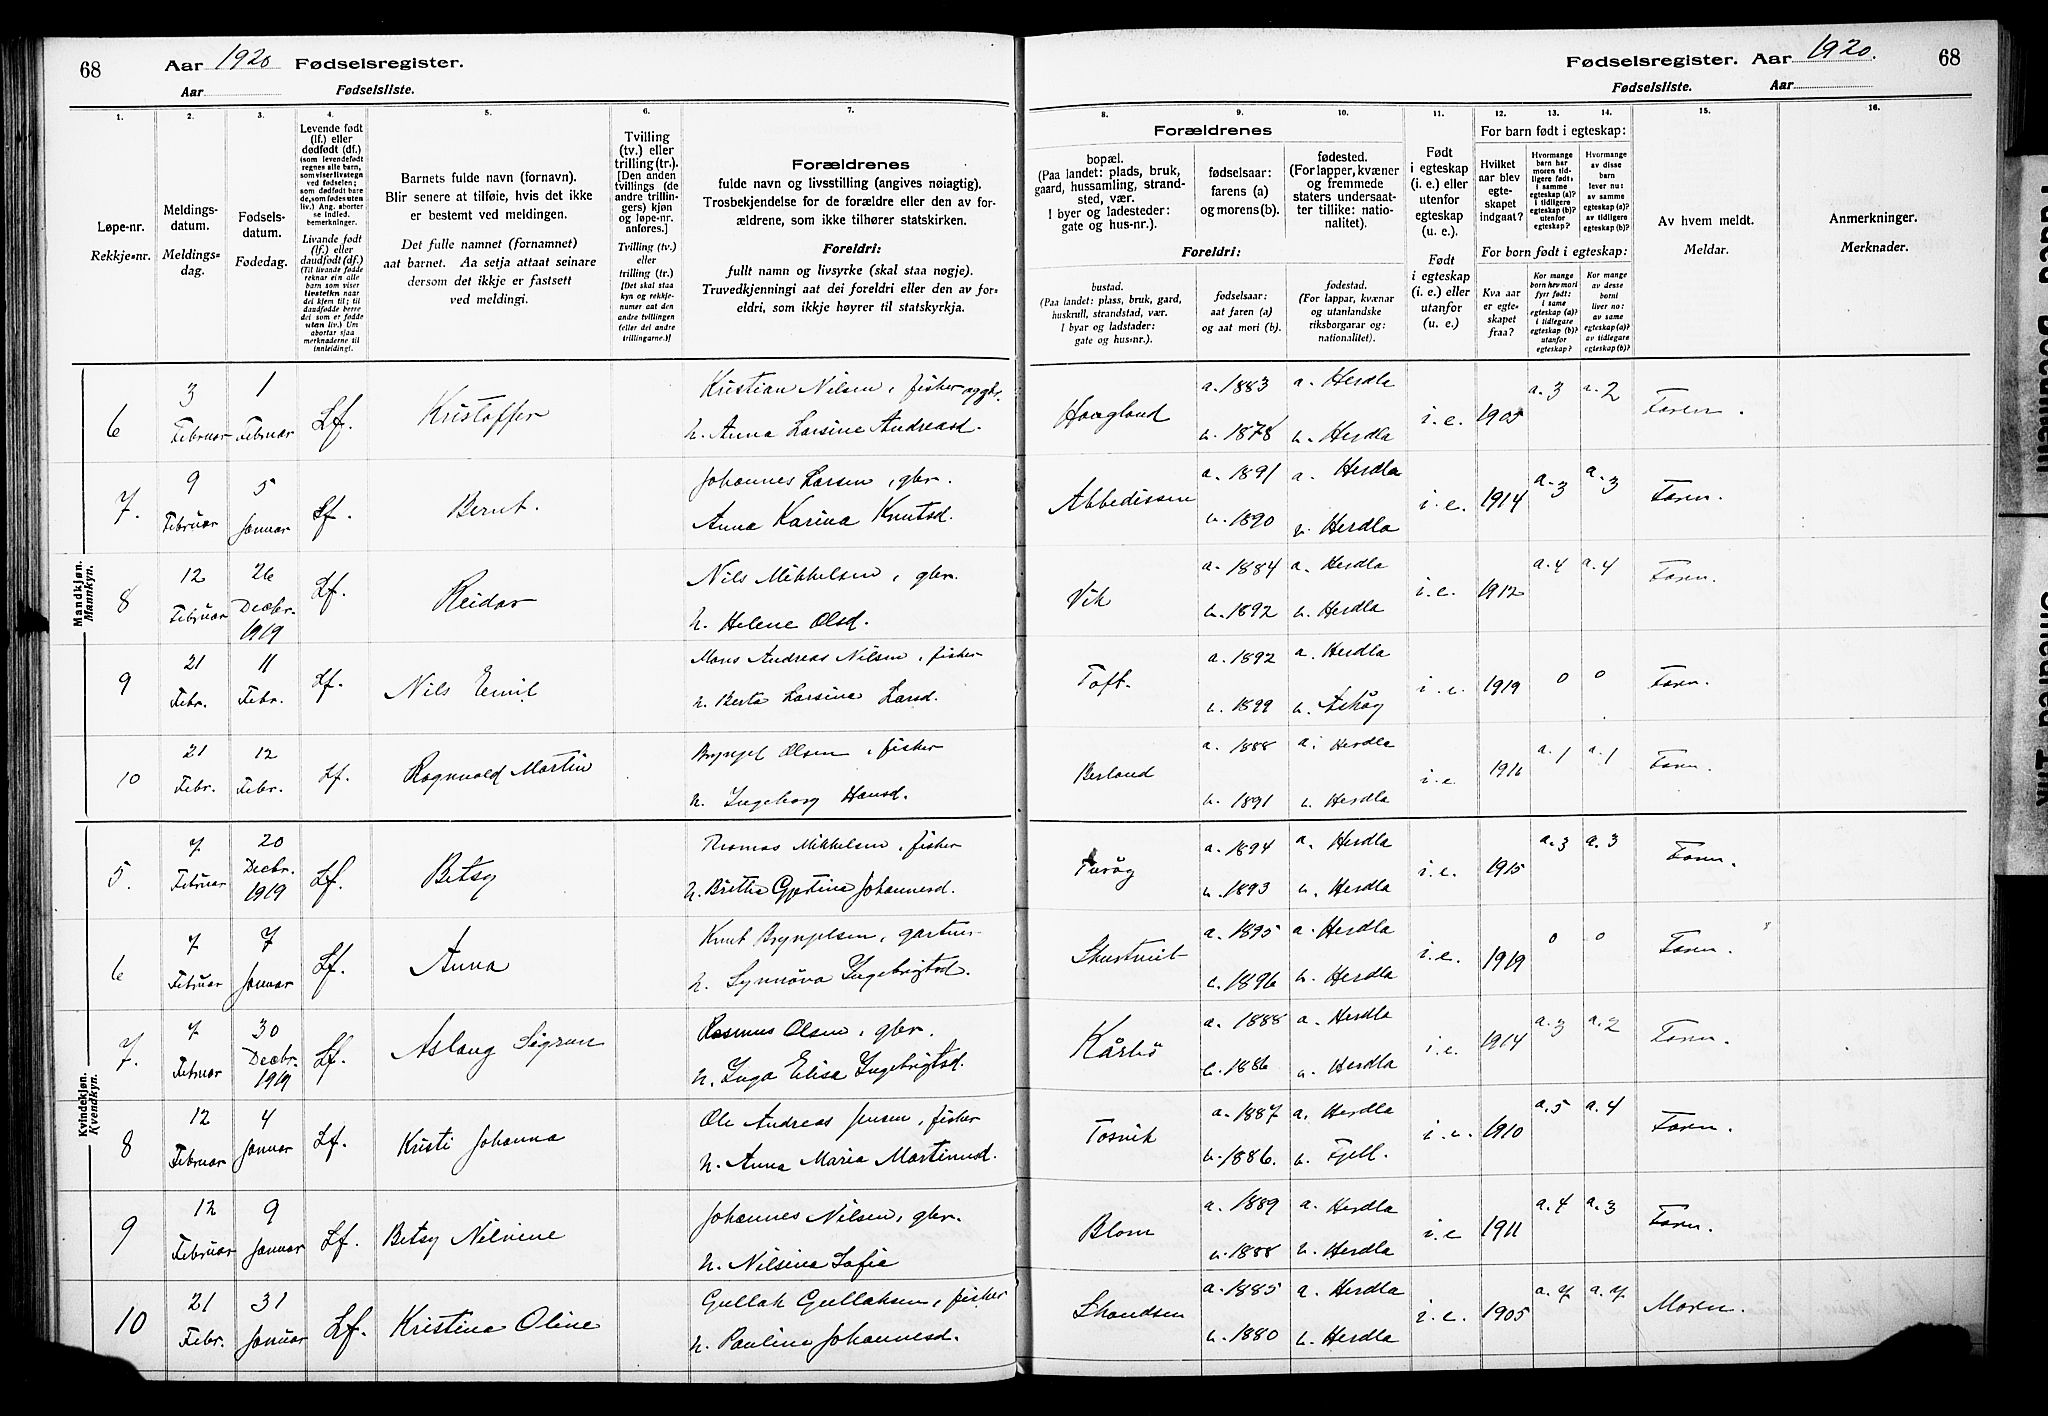 68 Aar 1920 Fødselsregister.
Aar Fødselsliste.
1. 2. 3. 4. 5. 6. 7.
Løpe-nr.
Rekkje-nr.
Meldings-
datum.
Meldings-
dag.
Fødsels-
datum.
Fødedag.
Levende født
(lf.) eller
dødfødt (df.)
(som levendefødt
regnes alle barn,
som viser livstegn
ved fødselen;
som dødfødt bare
de, som fødes uten
liv.) Ang. aborter
se indled.
bemerkninger.
Livande født
(lf.) eller
daudfødt (df.)
(Til livande fødde
reknar ein alle
barn som viser
livsteikn naar
dei kjem til; til
daudfødde berre
dei som er fødde
utan liv.) Um
abortar sjaa
merknaderne til
innleiding!.
Barnets fulde navn (fornavn).
Blir senere at tilføie, hvis det ikke
er bestemt ved meldingen.
Det fulle namnet (fornamnet)
aat barnet. Aa setja attaat seinare
dersom det ikkje er fastsett
ved meldingi.
Tvilling
(tv.) eller
trilling (tr.).
[Den anden
tvillings (de
andre trillin-
gers) kjøn
og løpe-nr.
anføres.]
Tvilling (tv.)
eller
trilling (tr.)
[Det skal staa
kyn og rekkje-
numer aat den
andre tvillingen
(eller dei andre
trillingarne.)]
Forældrenes
fulde navn og livsstilling (angives nøiagtig).
Trosbekjendelse for de forældre eller den av for-
ældrene, som ikke tilhører statskirken.
Foreldri:
fullt namn og livsyrke (skal staa nøgje).
Truvedkjenningi aat dei foreldri eller den av for-
eldri, som ikkje høyrer til statskyrkja.
Mandkjøn.
Mannkyn.
6 3 Februar 1 Februar Lf. Kristoffer Kristian Nilsen, fisker og gbr.
h. Anna Larsine Andreasd.
7. 9 Februar 5 Januar Lf. Bernt. Johannes Larsen, gbr.
Anna Karina Knutsd.
8 12 Februar 26 Decbr. 1919 Lf. Reidar Nils Mikkelsen, gbr.
h. Helene Olsd.
9 21 Febr. 11 Febr. Lf. Nils Emil Mons Andreas Nilsen, fisker
h. Berta Larsine Larsd.
10 21 Febr. 12 Febr. Lf. Ragnvald Martin Brynjel Olsen, fisker
h. Ingeborg Hansd.
Kvindekjøn.
Kvendkyn.
5. 7 Februar 20 Decbr. 1919 Lf. Betsy Thomas Mikkelsen, fisker
h. Britha Gjertina Johannesd.
6 7 Februar 7 Januar Lf. Anna Knut Brynjelsen, gartner
h. Synnøva Ingebrigtsd.
7. 7 Februar 30 Decbr. 1919 Lf. Aslaug Sigrun Rasmus Olsen, gbr.
h. Inga Elisa Ingebrigtsd.
8 12 Februar 4 Januar Lf. Kristi Johanna Ole Andreas Jensen, fisker
h. Anna Maria Martinusd.
9 12 Februar 9 Januar Lf. Betsy Nilsine Johannes Nilsen, gbr.
h. Nilsina Sofie
10 21 Febr. 31 Januar Lf. Kristina Oline Gullak Gullaksen, fisker
h. Paulina Johannesd.
Fødselsregister. Aar 1920. 68
Fødselsliste. Aar
8. 9. 10. 11. 12. 13. 14. 15. 16.
Forældrenes
bopæl.
(Paa landet: plads, bruk,
gaard, hussamling, strand-
sted, vær.
I byer og ladesteder:
gate og hus-nr.).
fødselsaar:
farens (a)
og morens (b).
fødested.
(For lapper, kvæner
og fremmede
staters undersaat-
ter tillike: natio-
nalitet).
Foreldri:
bustad.
(Paa landet: plass, bruk, gard,
huskrull, strandstad, vær.
I byar og ladstader:
gate og hus-nr.).
fødselsaar:
aat faren (a)
og aat mori (b).
fødestad.
(For lappar, kvænar
og utanlandske
riksborgarar og:
nationalitet).
Født
i egteskap
(i. e.) eller
utenfor
egteskap
(u. e.).
Født
i egteskap
(i. e.) eller
utanfor
(u. e.)
For barn født i egteskap:
Hvilket
aar blev
egte-
skapet
indgaat?
Hvormange
barn har
moren tid-
ligere født:
i samme
egteskap (a)?
i tidligere
egteskap (b)?
utenfor
egteskap?
Hvormange
av disse
barn
lever nu:
av samme
egteskap (a)?
av tidligere
egteskap (b)?
For born født i egteskap:
Kva aar
er egte-
skapet
fraa?
Kor mange
born hev mori
fyrr født:
i same
egteskap (a)?
i tidlegare
egteskap (b)?
utanfor
egteskap?
Kor mange
av desse
borni
liver no:
av same
egteskap (a)?
av tidlegare
egteskap (b)?
Av hvem meldt.
Meldar.
Anmerkninger.
Merknader.
Haugland a. 1883 a. Herdla i. e. 1905 a. 3 a. 2 Faren.
b. 1878 b. Herdla
Abbedissen a. 1891 a. Herdla i. e. 1914 a. 3 a. 3 Faren.
b. 1890 b. Herdla
Vik a. 1884 a. Herdla i. e. 1912 a. 4 a. 4 Faren.
b. 1892 b. Herdla
Toft. a. 1892 a. Herdla i. e. 1919 0 0 Faren.
b. 1899 b. Askøy
Berland a. 1888 a. Herdla i. e. 1916 a. 1 a. 1 Faren.
b. 1891 b. Herdla
Turøy a. 1894 a. Herdla i. e. 1915 a. 3 a. 3 Faren.
b. 1893 b. Herdla
Skustveit a. 1895 a. Herdla i. e. 1919 0 0 Faren.
b. 1896 b. Herdla
Kårbø a. 1888 a. Herdla i. e. 1914 a. 3 a. 2 Faren.
b. 1886 b. Herdla
Tosvik a. 1887 a. Herdla i. e. 1910 a. 5 a. 4 Faren.
b. 1886. b. Fjell.
Blom a. 1889 a. Herdla i. e 1911 a. 4 a. 3 Faren.
b. 1888 b. Herdla
Skandsen a. 1885 a. Herdla i. e. 1905 a. 7 a. 7 Moren.
b. 1880 b. Herdla